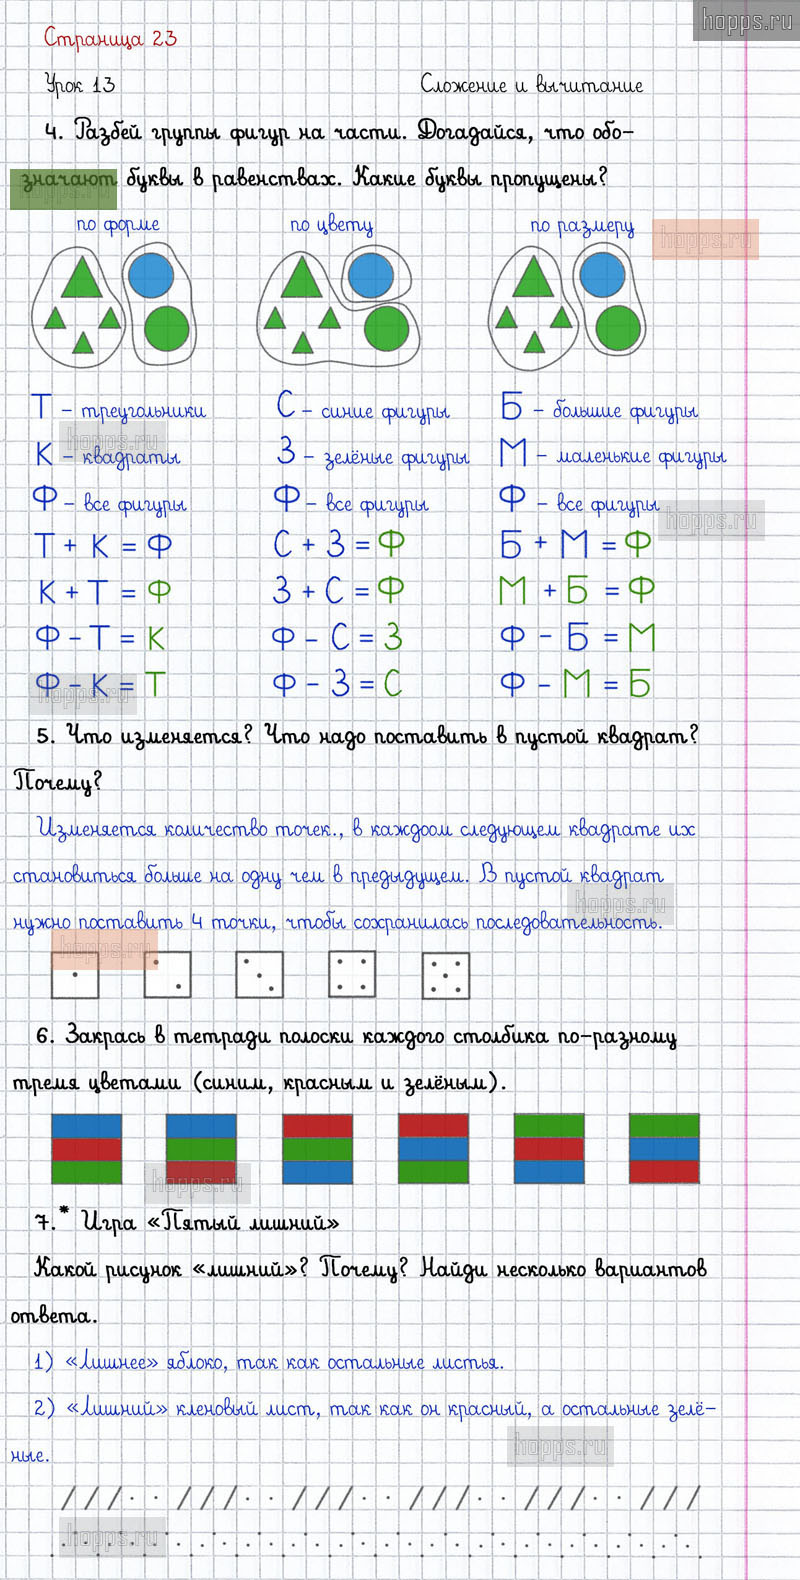 hopps.ru
Страница 23
Урок 13 Сложение и вычитание
4. Разбей группы фигур на части. Догадайся, что обо-
значают буквы в равенствах. Какие буквы пропущены?
hopps.ru
по форме по цвету по размеру
hopps.ru
Т – треугольники С – синие фигуры Б – большие фигуры
hopps.ru
К – квадраты З – зелёные фигуры М – маленькие фигуры
Ф – все фигуры Ф – все фигуры Ф – все фигуры
hopps.ru
Т + К = Ф С + З = Ф Б + М = Ф
К + Т = Ф З + С = Ф М + Б = Ф
Ф – Т = К Ф – С = З Ф – Б = М
Ф – К = Т Ф – З = С Ф – М = Б
hopps.ru
5. Что изменяется? Что надо поставить в пустой квадрат?
Почему?
Изменяется количество точек., в каждоом следующем квадрате их
становиться больше на одну чем в предыдущем. В пустой квадрат
hopps.ru
нужно поставить 4 точки, чтобы сохранилась последовательность.
hopps.ru
6. Закрась в тетради полоски каждого столбика по-разному
тремя цветами (синим, красным и зелёным).
hopps.ru
7.* Игра «Пятый лишний»
Какой рисунок «лишний»? Почему? Найди несколько вариантов
ответа.
1) «Лишнее» яблоко, так как остальные листья.
2) «Лишний» кленовый лист, так как он красный, а остальные зелё-
ные.
hopps.ru
hopps.ru